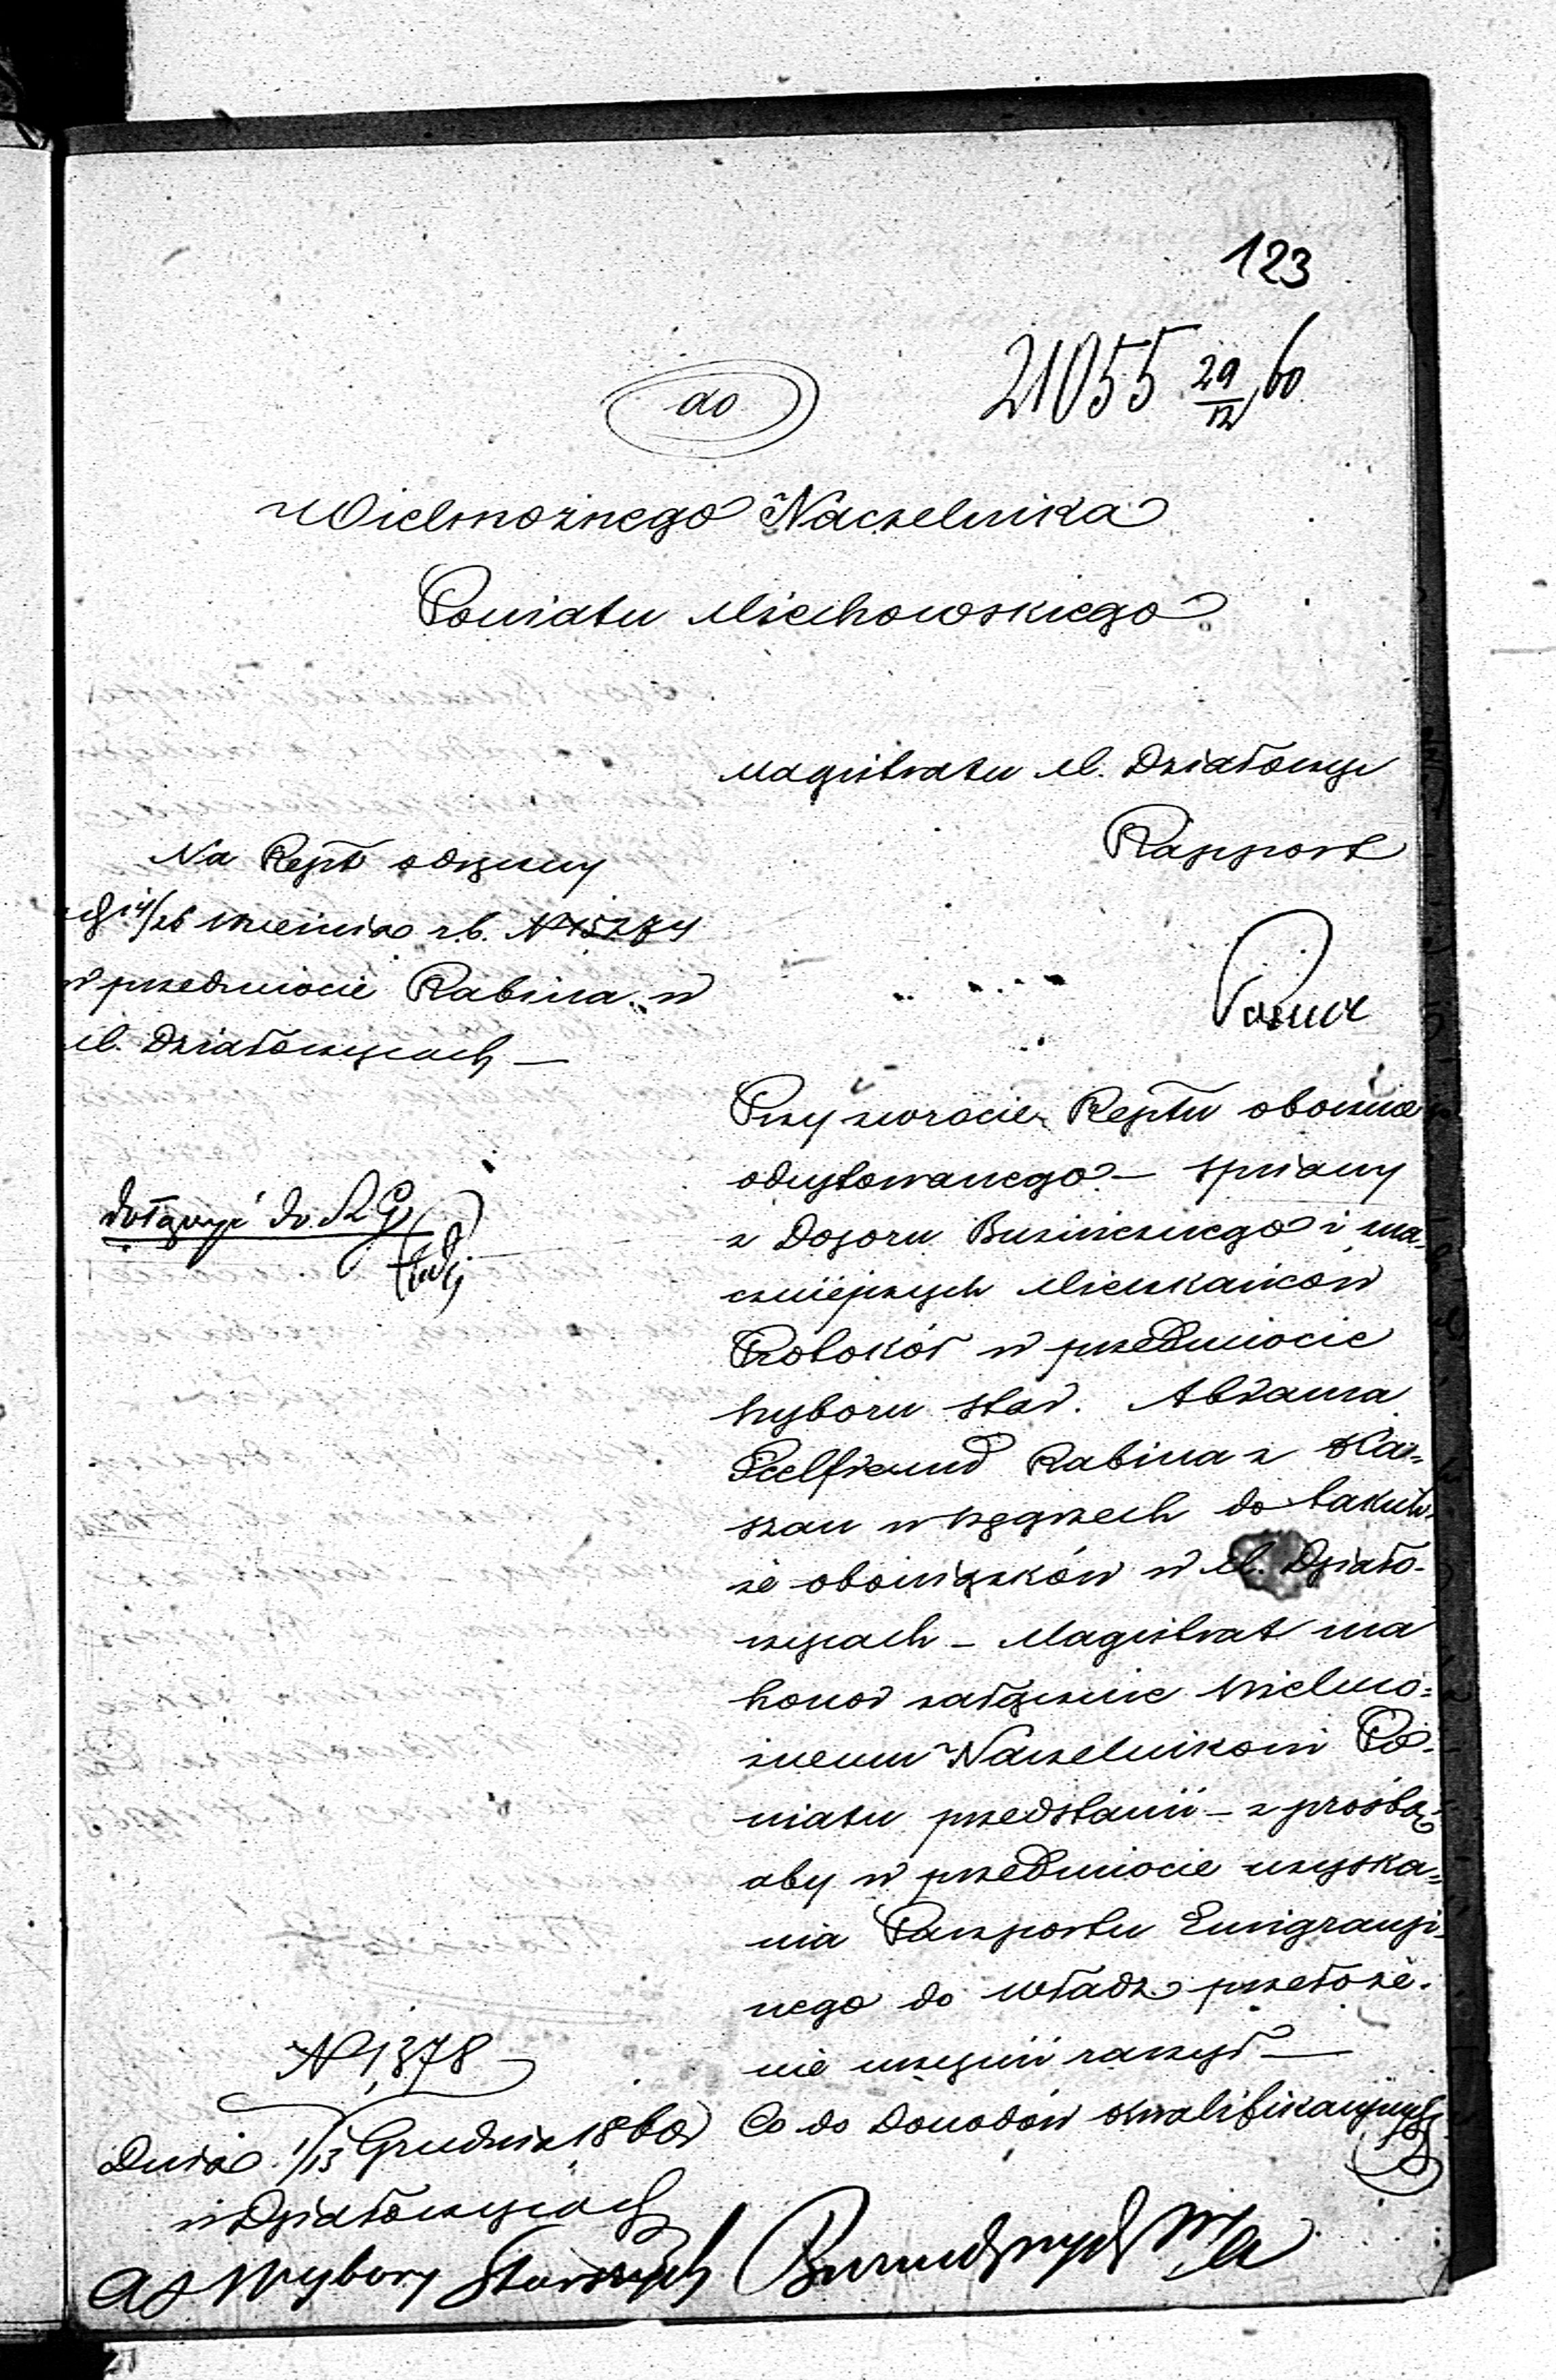 123
21055 29/12 60
do
Wielmożnego Naczelnika
Powiatu Miechowskiego
Magistratu M. Działoszyc
Rapport
Na Rept odezwy
14/26 Września r.b. N 15274
w przedmiocie Rabina w
M. Działoszycach —
dołączyć do
Przy zwrocie Reptu obocznie
odcytowanego — spisany
z Dozoru Bużnicznego i zna-
czniejszych Mieszkańców
Protokół w przedmiocie
wyboru star. Abrama
Rabina z
szau w Węgrzech do takich
że obowiązków w M. Działo-
szycach — Magistrat ma
honor załącznie Wielmo=
żnemu Naczelnikowi Po-
wiatu przedstawić — z prośbą
aby w przedmiocie uzyska=
nia Paszportu Emigracyj-
nego do władz przełoże-
nie uczynić raczył —
Co do Dowodów kwalifikacyjnych
N 1,378
Dnia 1/13 Grudnia 1860 r
w Działoszycach
Burmistrz
as Wybory Starszych